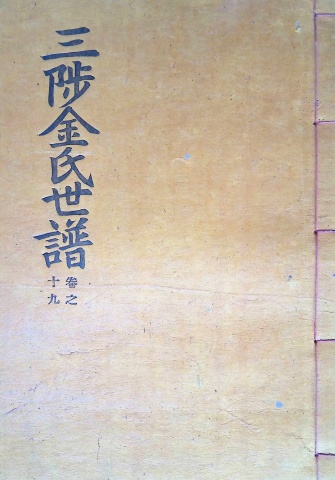 三陟金氏世譜
卷之
十九